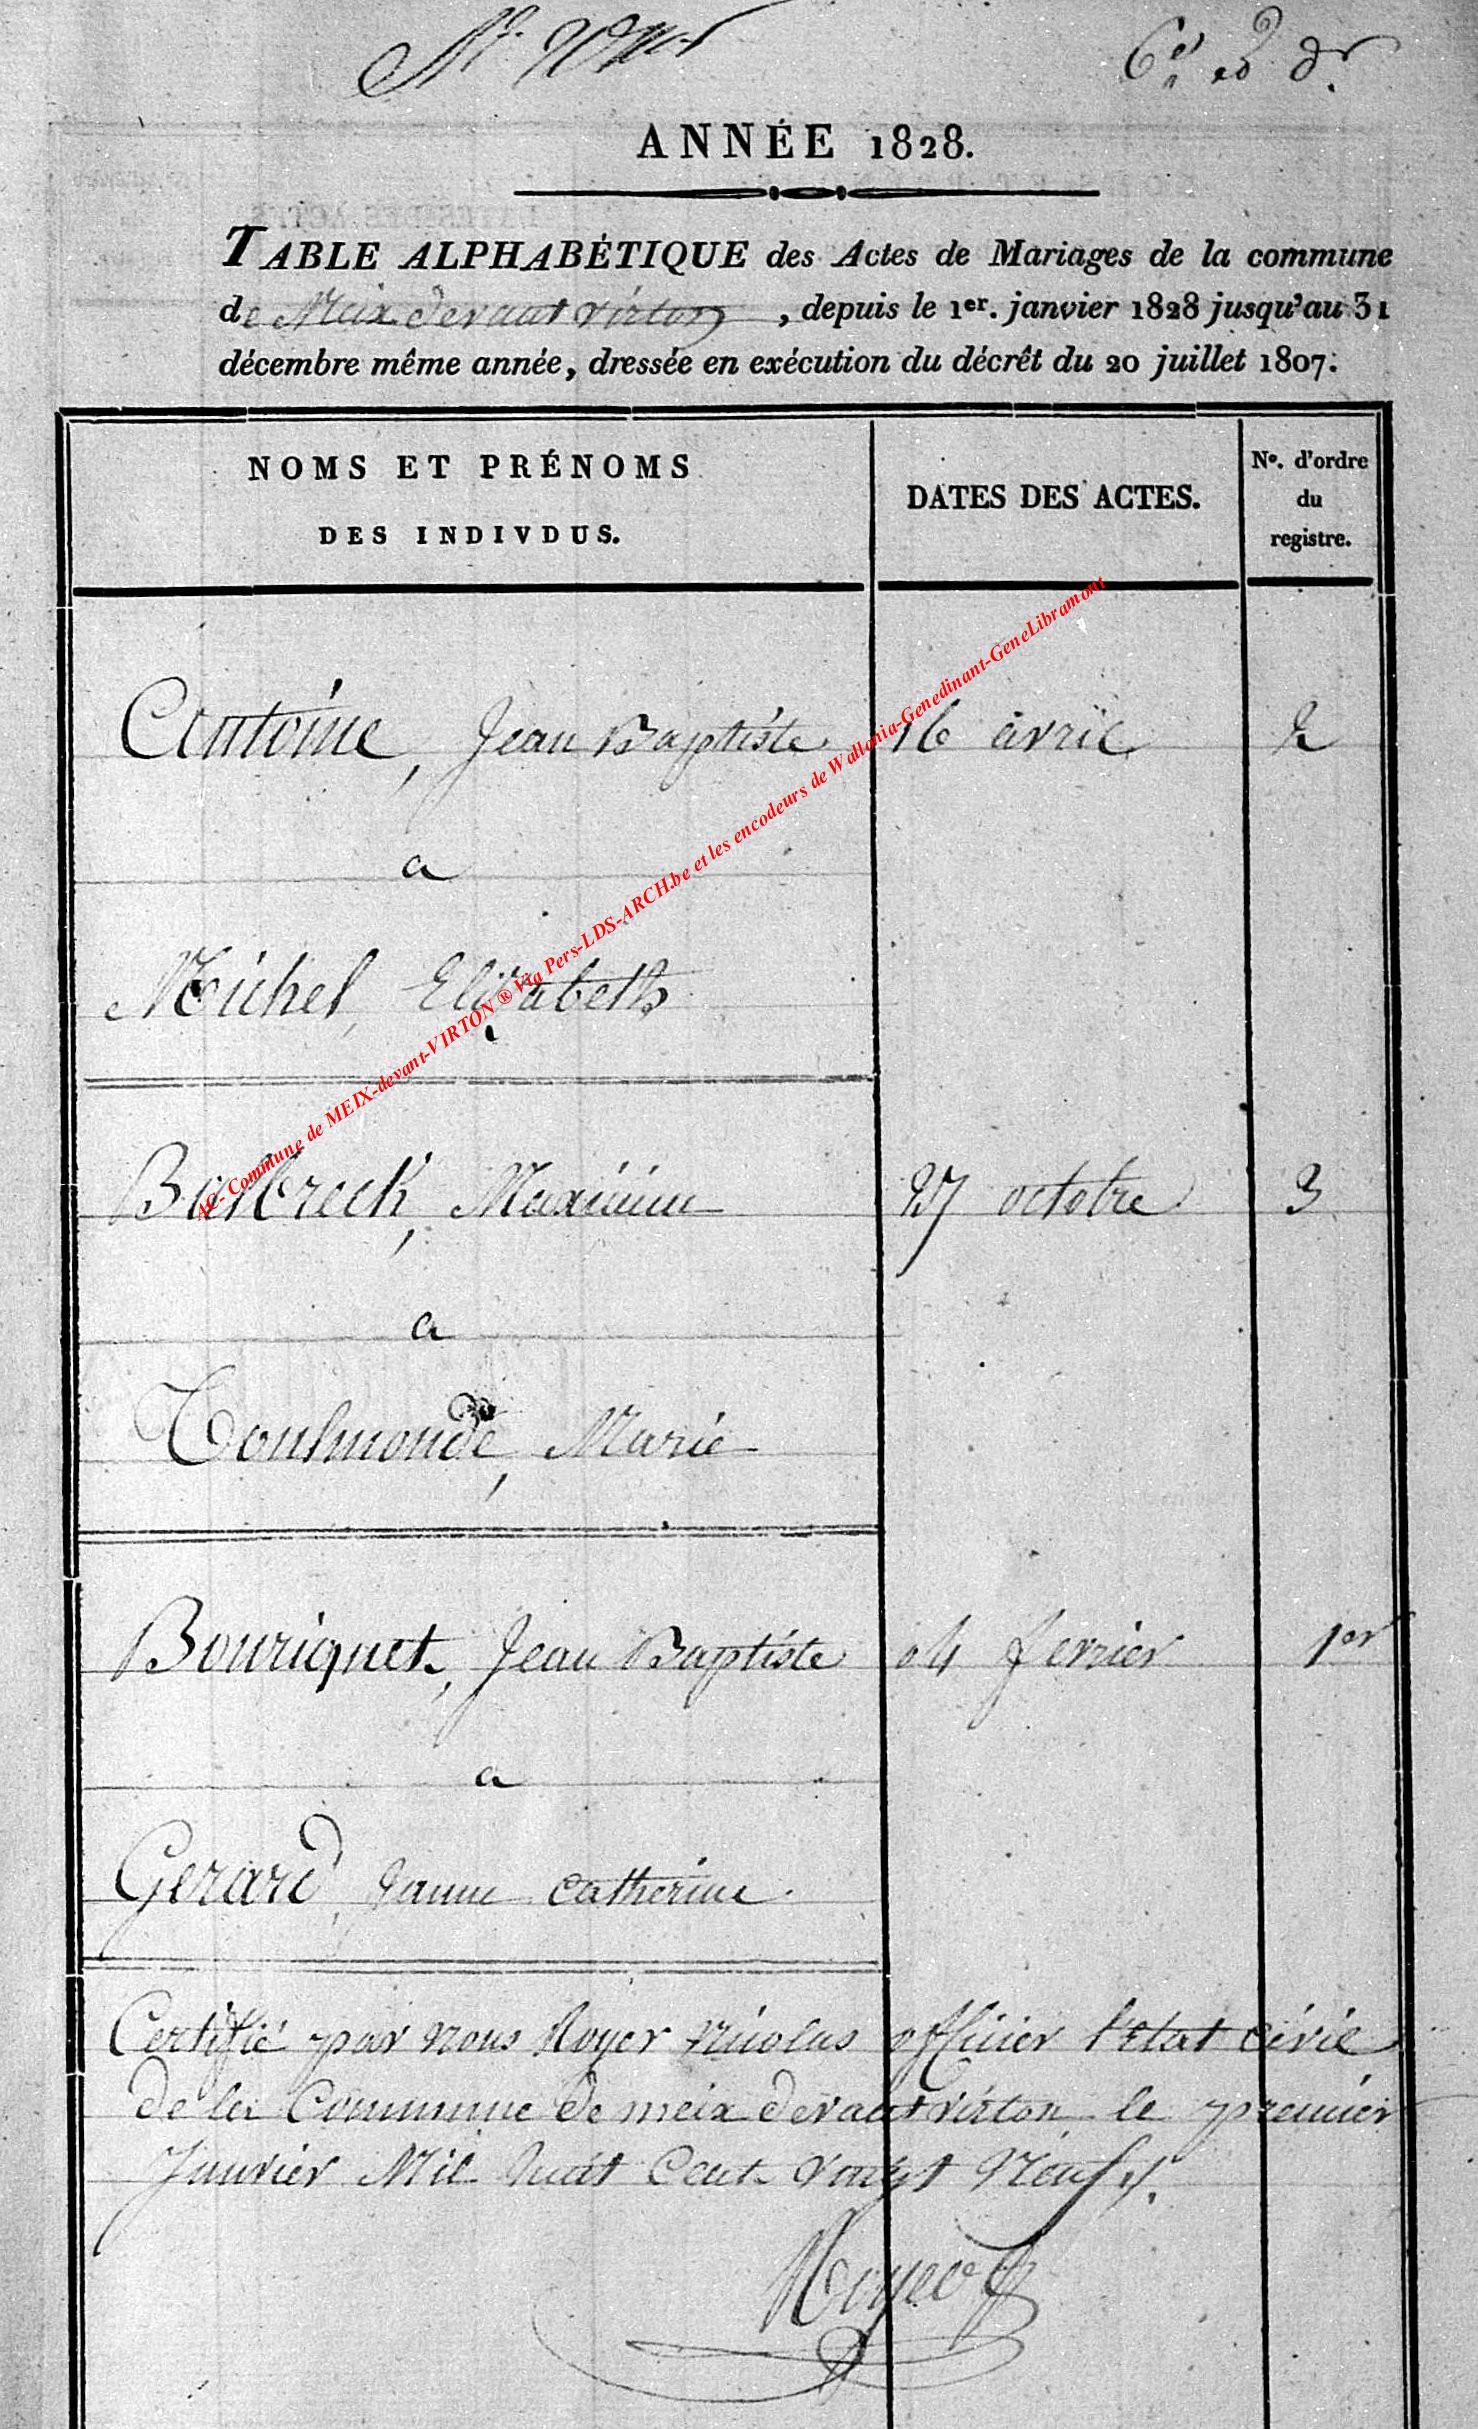 ANNÉE 1828.
TABLE ALPHABÉTIQUE des Actes de Mariages de la commune
de Meix devant virton, depuis le 1er. janvier 1828 jusqu'au 31
décembre même année, dressée en exécution du décrêt du 20 juillet 1807.
NOMS ET PRÉNOMS
DES INDIVDUS.
DATES DES ACTES.
No. d'ordre
du
registre.
Antoine, Jean Baptiste 16 avril 2
a
Michel, Elizabeth
AC- Commune de MEIX-devant-VIRTON ® Via Pers-LDS-ARCH.be et les encodeurs de Wallonia-Genedinant-GeneLibramont
Maximin 27 octobre 3
a
Toulmonde, Marie
Bouriquet, Jean Baptiste 04 fevrier 1er
a
Gerard, Janne catherine.
Certifié par nous Royer Nicolas officier l'etat civil
de la Commune de meix devant virton le premier
Janvier Mil huit Cent vingt Neuf.
Royer